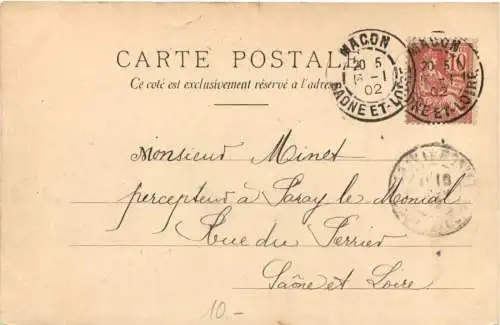 CARTE POSTALE
Ce coté est exclusivement réservé à l'adresse
MACON
20 5
-1
02
SAONE-ET-LOIRE
MACON
20 5
02
SAONE-ET-LOIRE
10
Monsieur Minet
percepteur à Paray le Monial
Rue du Perrier
Saône et Loire
10.-